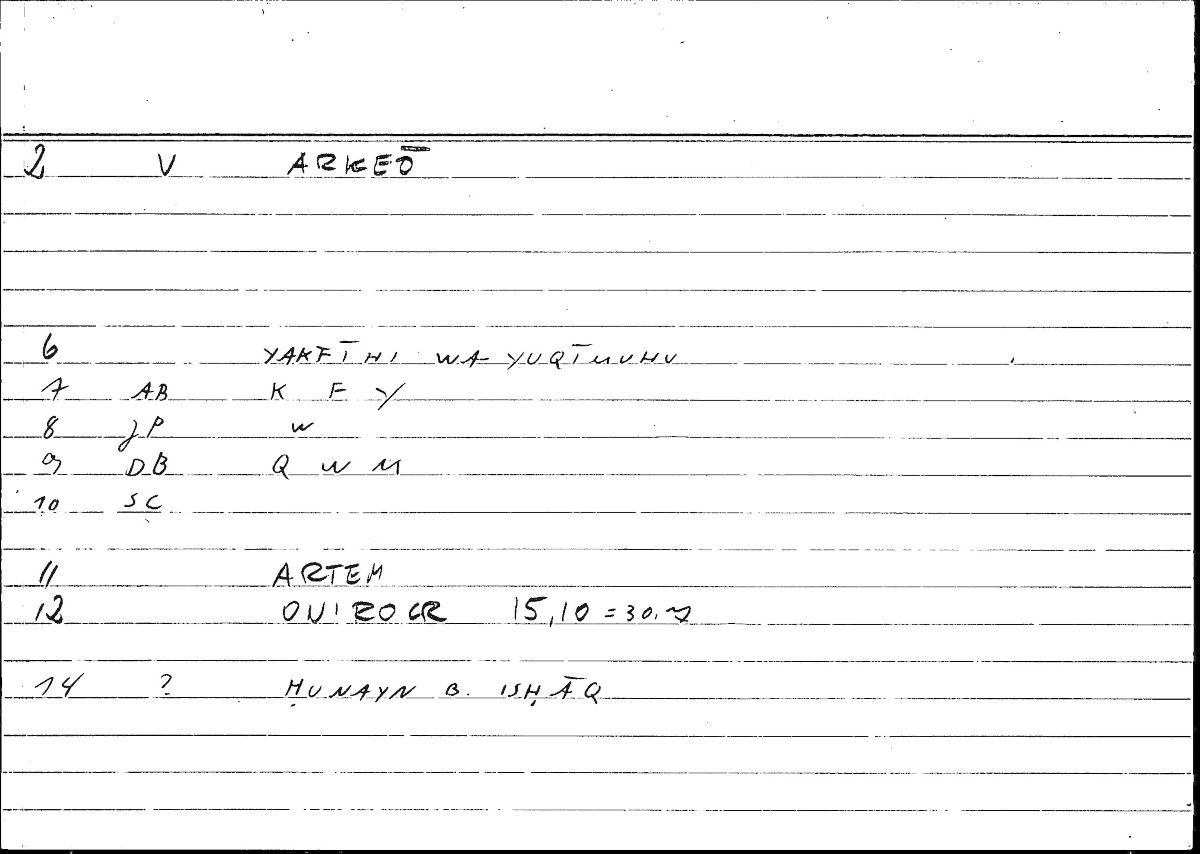 2 V ARKEŌ
6 YAKFĪHI WA YUQĪMUHU
7 AB K F Y
8 JP W
9 DB Q W M
10 SC
11 ARTEM
12 ONIROCR 15,10 = 30.7
14 ? ḤUNAYN B. ISḤĀQ